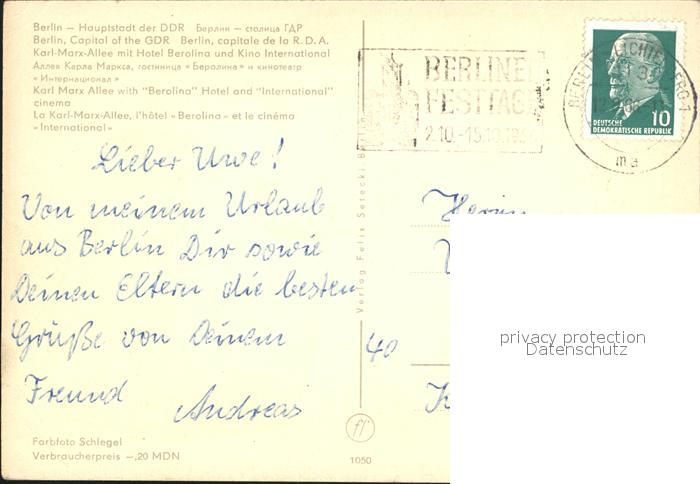 Berlin – Hauptstadt der DDR Берлин – столица ГДР
Berlin, Capital of the GDR Berlin, capitale de la R. D. A.
Karl-Marx-Allee mit Hotel Berolina und Kino International
Аллея Карла Маркса, гостиница «Беролина» и кинотеатр
«Интернационал»
Karl Marx Allee with "Berolina" Hotel and "International"
cinema
La Karl-Marx-Allee, l'hôtel «Berolina» et le cinéma
«International»
BERLINER
FESTTAGE
2.10.-15.10.
BERLIN LICHTENBERG 1
ma
10
DEUTSCHE
DEMOKRATISCHE REPUBLIK
Lieber Uwe!
Von meinem Urlaub
aus Berlin Dir sowie
Deinen Eltern die besten
Grüße von Deinem
Freund Andreas
Verlag Felix Setecki Berlin
Herrn
40
privacy protection
Datenschutz
Farbfoto Schlegel
Verbraucherpreis –,20 MDN
1050